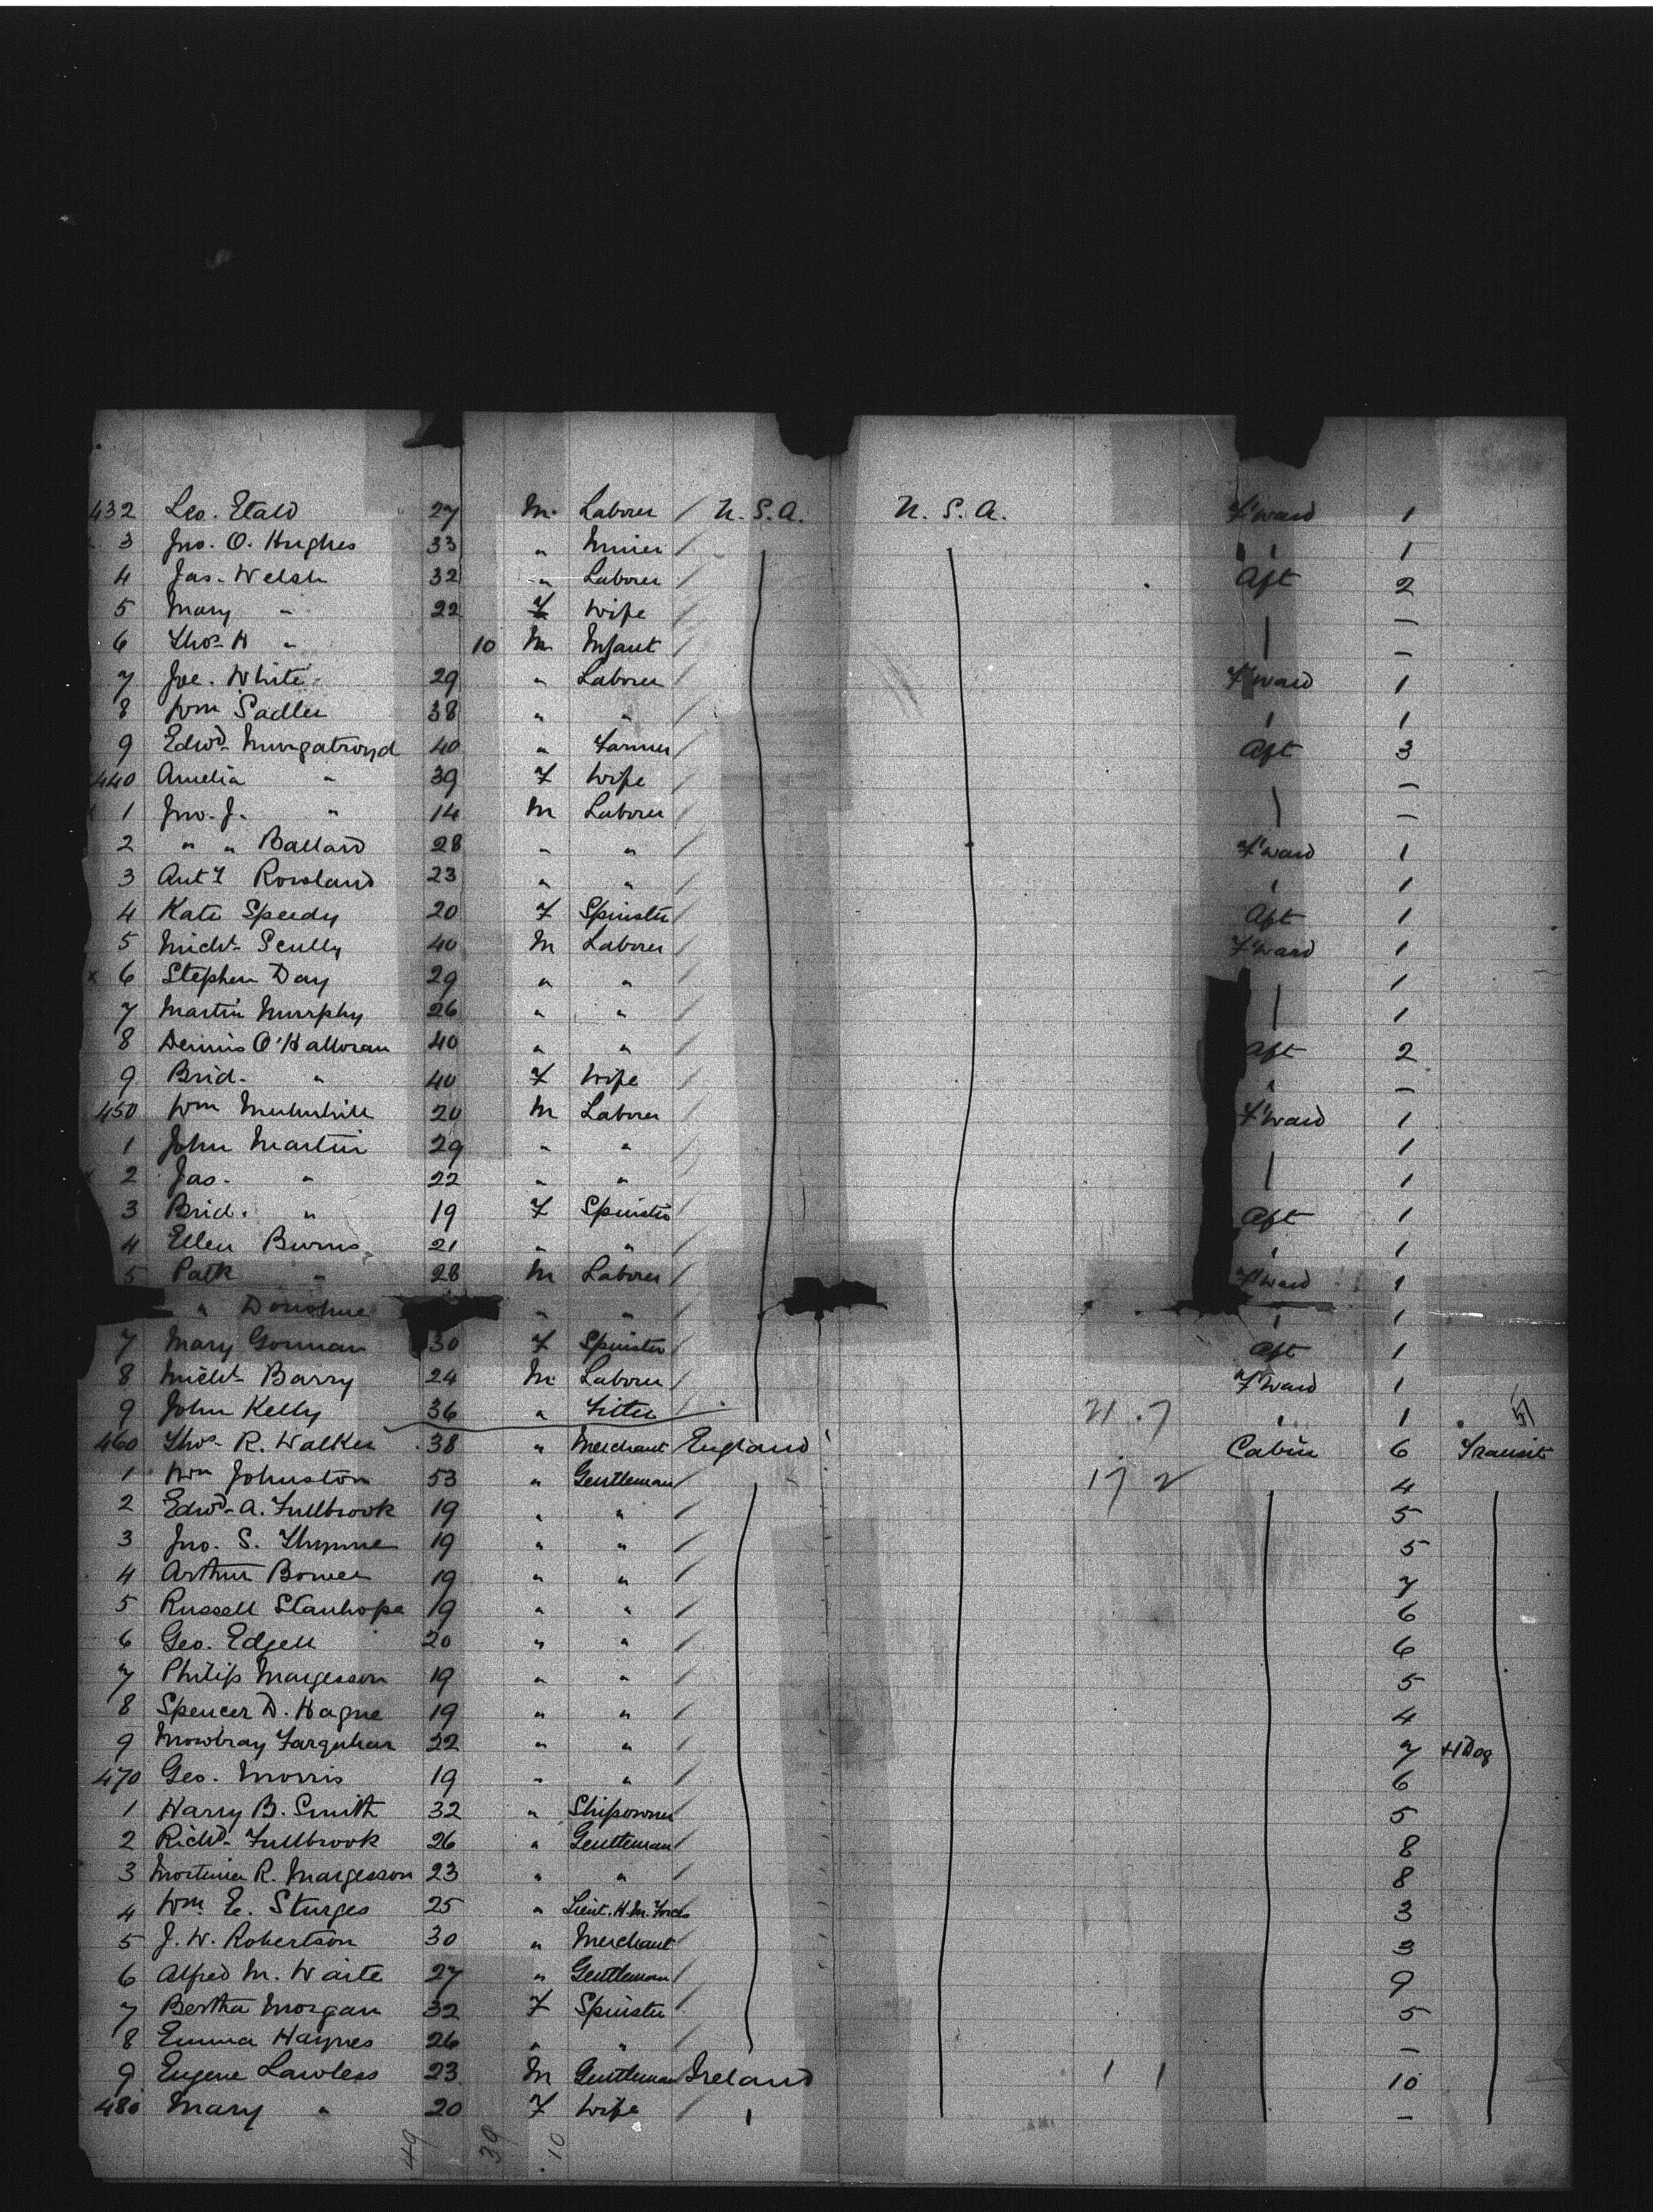 432 Leo. Etald 27 M. Laborer / U.S.A. U.S.A. F'ward 1
3 Jno. O. Hughes 33 " Miner / " 1
4 Jas. Welsh 32 " Laborer / Aft 2
5 Mary " 22 F Wife / —
6 Thos. H " 10 M Infant / —
7 Joe. White 29 " Laborer / F'ward 1
8 Wm Sadler 38 " " / " 1
9 Edwd. Murgatroyd 40 " Farmer / Aft 3
440 Amelia " 39 F Wife / —
1 Jno. J. " 14 M Laborer / —
2 " " Ballard 28 " " / F'ward 1
3 Anty Rowland 23 " " / " 1
4 Kate Speedy 20 F Spinster / Aft 1
5 Michl. Scully 40 M Laborer / F'ward 1
x 6 Stephen Day 29 " " / 1
7 Martin Murphy 26 " " / 1
8 Dennis O'Halloran 40 " " / Aft 2
9 Brid. " 40 F Wife / " —
450 Wm 20 M Laborer / F'ward 1
1 John Martin 29 " " / 1
2 Jas. " 22 " " / 1
3 Brid. " 19 F Spinster / Aft 1
4 Ellen Burns 21 " " / " 1
5 Patk " 28 M Laborer / F'ward 1
" Donohue " " / " 1
7 Mary Gorman 30 F Spinster / Aft 1
8 Michl. Barry 24 M Laborer / F'ward 1
9 John Kelly 36 " Fitter 21.7 " 1
460 Thos. R. Walker 38 " Merchant England Cabin 6 Transit
1 Wm Johnston 53 " Gentleman / 17 2 4
2 Edwd. A. Fullbrook 19 " " / 5
3 Jno. S. Thynne 19 " " / 5
4 Arthur Bower 19 " " / 7
5 Russell Stanhope 19 " " / 6
6 Geo. Edgell 20 " " / 6
7 Philip Margesson 19 " " / 5
8 Spencer D. Hague 19 " " / 4
9 Mowbray Farquhar 22 " " / 7 +1 Dog
470 Geo. Morris 19 " " / 6
1 Harry B. Smith 32 " Shipowner / 5
2 Richd. Fullbrook 26 " Gentleman / 8
3 Mortimer R. Margesson 23 " " / 8
4 Wm. E. Sturges 25 " Lieut. H.M. Forces 3
5 J. W. Robertson 30 " Merchant 3
6 Alfred M. Waite 27 " Gentleman / 9
7 Bertha Morgan 32 F Spinster / 5
8 Emma Haynes 26 " " / —
9 Eugene Lawless 23 M Gentleman Ireland 1 1 10
480 Mary " 20 F Wife / " —
49 39 10